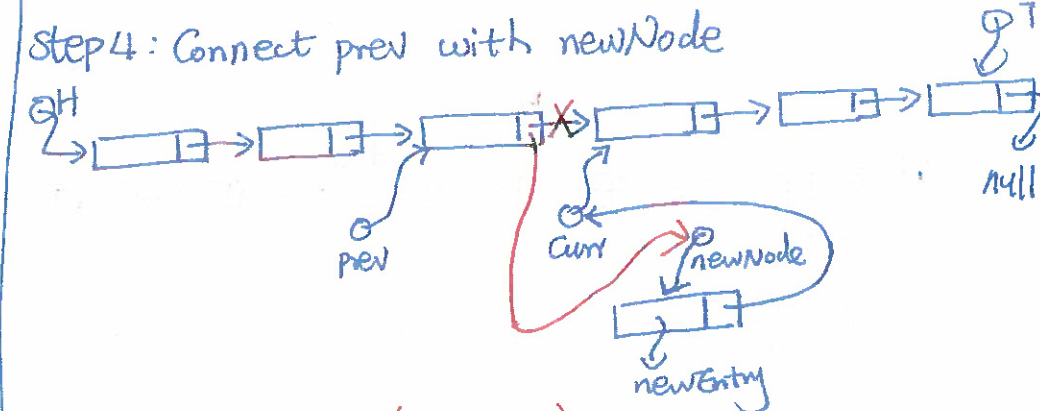 Step4: Connect prev with newNode
H
T
null
prev
Curr
newNode
newEntry